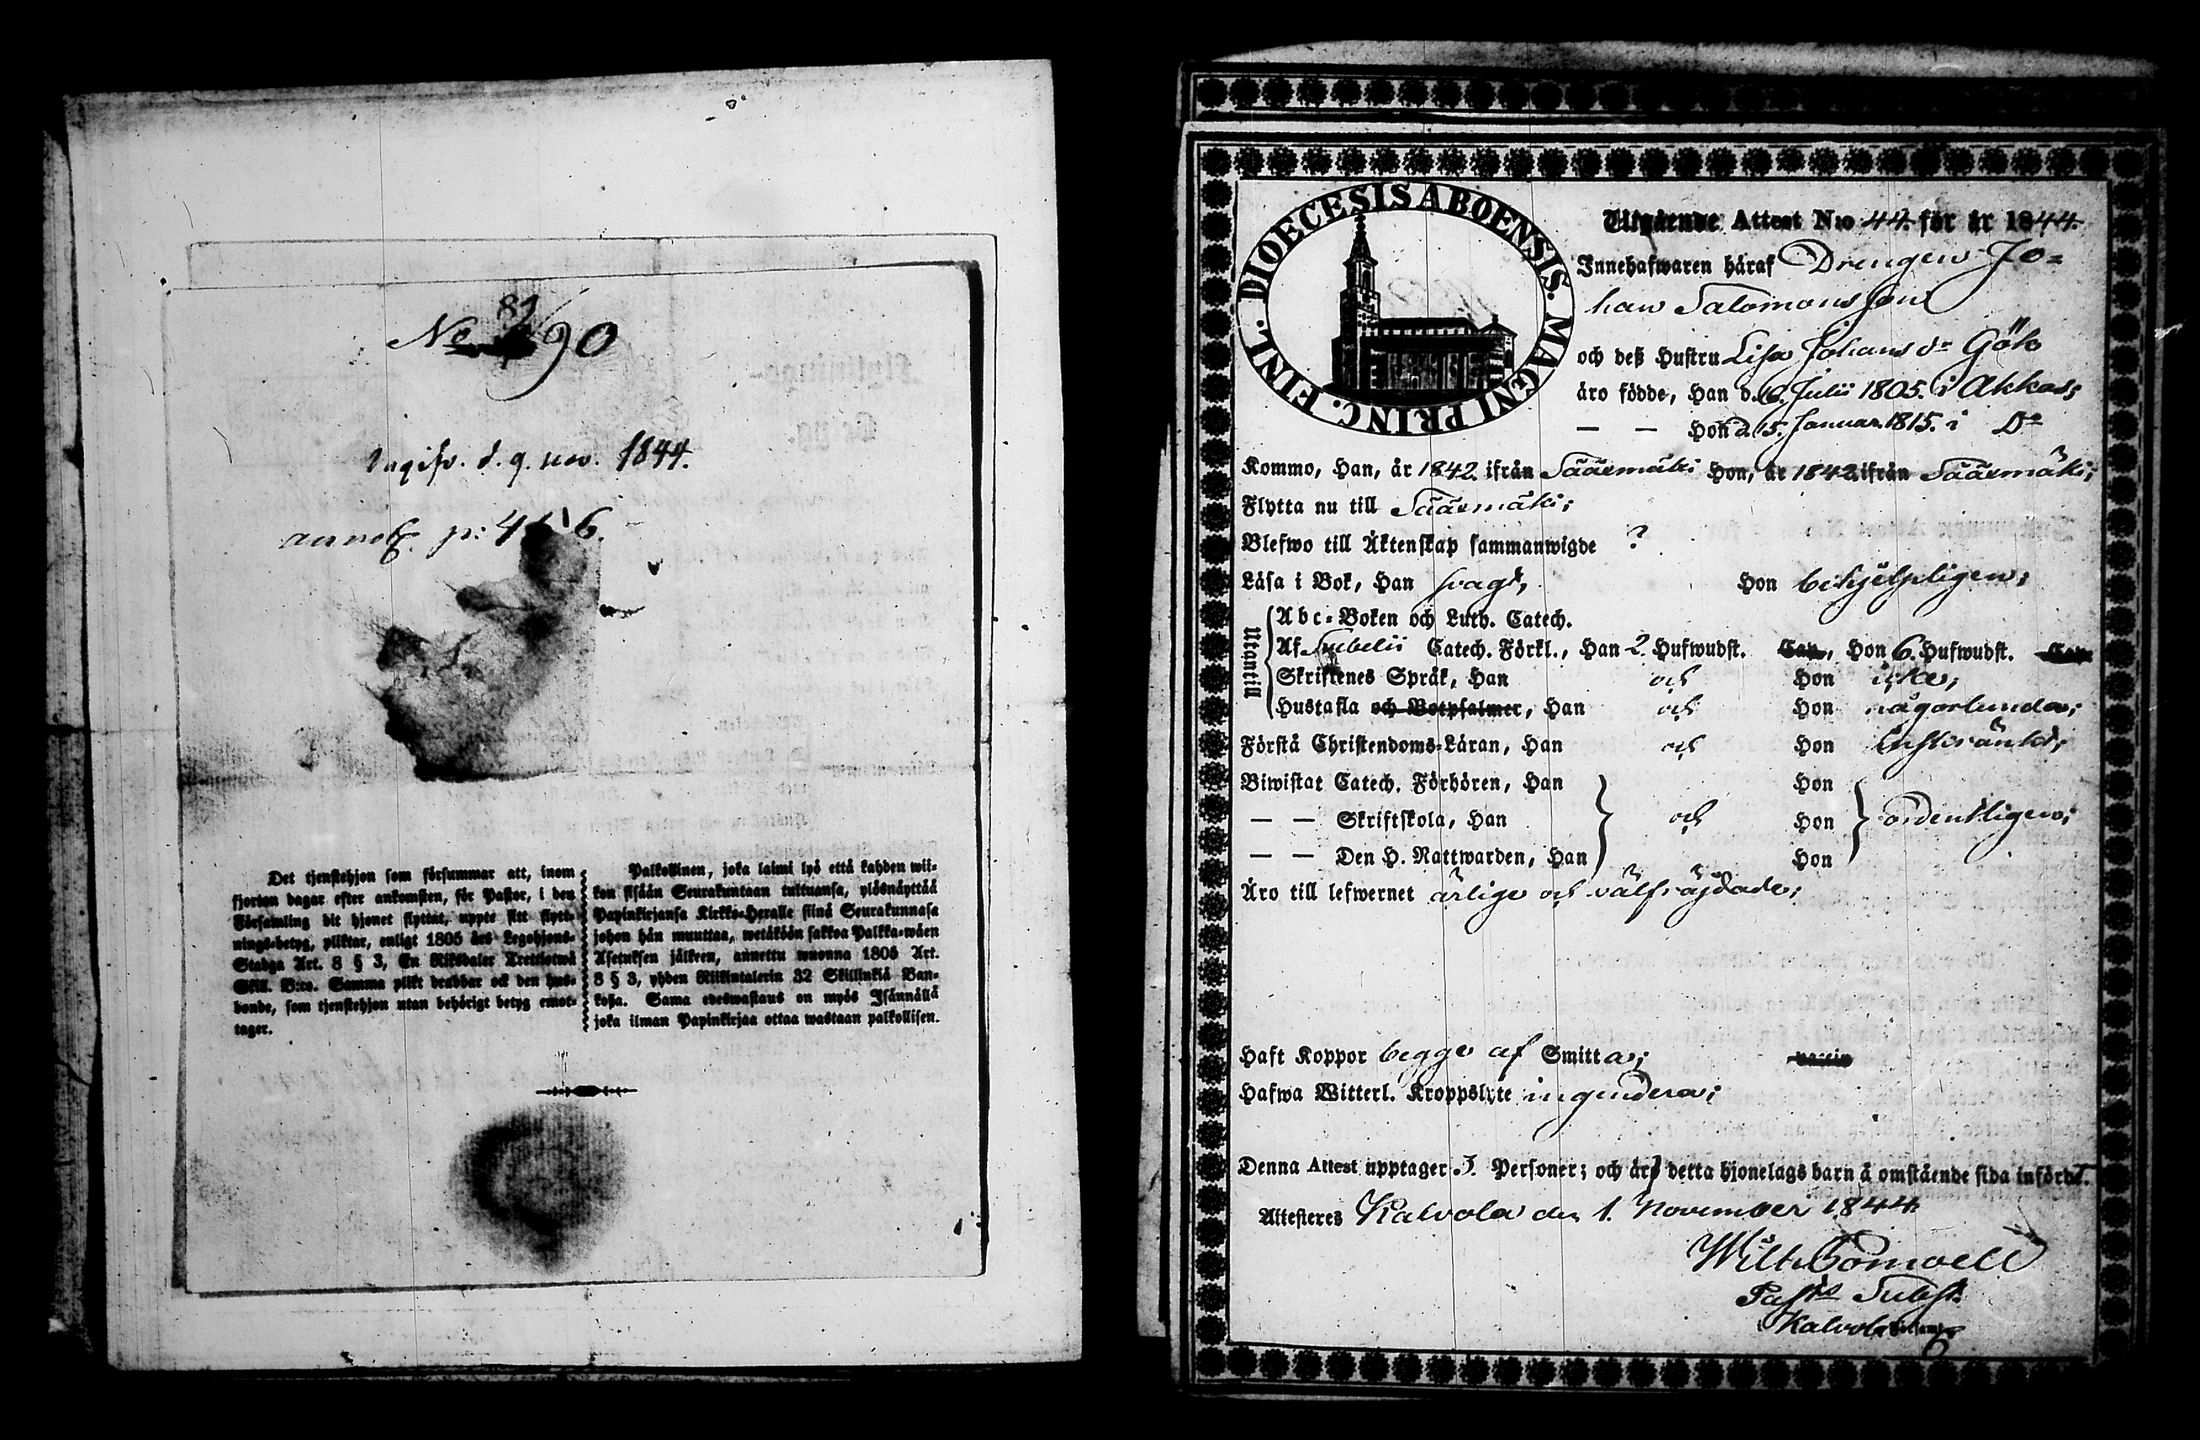 No 89/90
Ingifv. d. 9. nov. 1844.
annot. p: 416.
Det tjenstehjon som försummar att, inom
fjorton dagar efter ankomsten, för Pastor, i den
Församling dit hjonet flyttat, uppte sitt flytt-
nings-betyg, pliktar, enligt 1805 års Legohjons-
Stadga Art. 8 § 3, En Riksdaler Trettiotwå
Skill. B:co. Samma plikt drabbar ock den hus-
bonde, som tjenstehjon utan behörigt betyg emot-
tager.
Palkollinen, joka laimi lyö että kahden wii-
kon sisään Seurakuntaan tultuansa, ylösnäyttää
Papinkirjansa Kirkko-Heralle siinä Seurakunnasa
johon hän muuttaa, wetäköön sakkoa Palkka-wäen
Asetuksen jälkeen, annettu wuonna 1805 Art.
8 § 3, yhden Riikintalerin 32 Skillinkiä Ban-
kossa. Sama edeswastaus on myös Isännällä
joka ilman Papinkirjaa ottaa wastaan palkollisen.
DIOECESIS ABOENSIS. MAGNI PRINC. FINL.
Utgående Attest N:o 44. för år 1844.
Innehafwaren häraf Drengen Jo-
han Salomonsson
och deß Hustru Lisa Johans dr Gök
äro födde, Han d. 6. Julii 1805. i Akkas;
— — Hon d. 15. Januar. 1815. i Do
Kommo, Han, år 1842. ifrån Sääxmäki Hon, år 1842 ifrån Sääxmäki;
Flytta nu till Sääxmäki;
Blefwo till Äktenskap sammanwigde ?
Läsa i Bok, Han svagt, Hon behjelpligen;
Utantill
Abc-Boken och Luth. Catech.
Af Svebelii Catech. Förkl., Han 2. Hufwudst. Cap., Hon 6. Hufwudst. Cap.
Skriftenes Språk, Han och Hon icke;
Hustafla och Botpsalmer, Han och Hon någorlunda;
Förstå Christendoms-Läran, Han och Hon inskränkt;
Biwistat Catech. Förhören, Han Hon
— — Skriftskola, Han och Hon ordentligen;
— — Den H. Nattwarden, Han Hon
Äro till lefwernet ärlige och välfräjdade;
Haft Koppor begge af Smitta; vaccin
Hafwa Witterl. Kroppslyte ingendera;
Denna Attest upptager 3. Personer; och äro detta hjonelags barn å omstående sida införd.
Attesteres Kalvola den 1. November 1844
Past:s Subst.
Kalvola